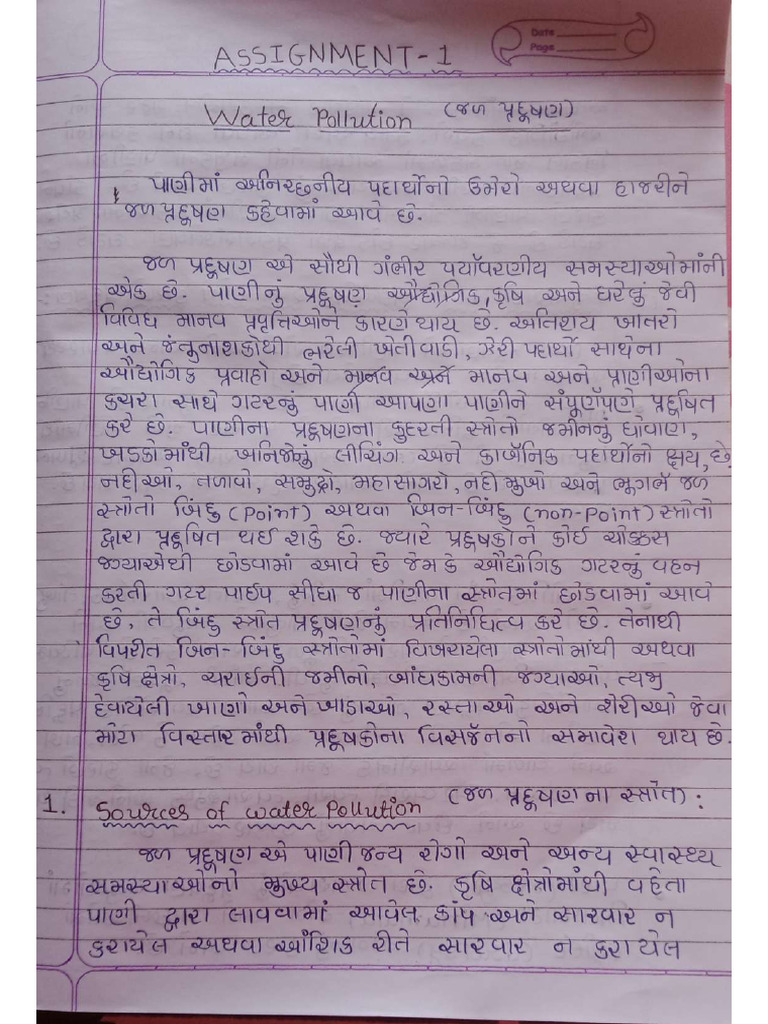 Date
Page
ASSIGNMENT-1
Water Pollution (જળ પ્રદૂષણ)
પાણીમાં અનિચ્છનીય પદાર્થોનો ઉમેરો અથવા હાજરીને
જળ પ્રદૂષણ કહેવામાં આવે છે.
જળ પ્રદૂષણ એ સૌથી ગંભીર પર્યાવરણીય સમસ્યાઓમાંની
એક છે. પાણીનું પ્રદૂષણ ઔદ્યોગિક, કૃષિ અને ઘરેલું જેવી
વિવિધ માનવ પ્રવૃત્તિઓને કારણે થાય છે. અતિશય ખાતરો
અને જંતુનાશકોથી ભરેલી ખેતીવાડી, ઝેરી પદાર્થો સાથેના
ઔદ્યોગિક પ્રવાહો અને માનવ અને માનવ અને પ્રાણીઓના
કચરા સાથે ગટરનું પાણી આપણા પાણીને સંપૂર્ણપણે પ્રદૂષિત
કરે છે. પાણીના પ્રદૂષણના કુદરતી સ્ત્રોતો જમીનનું ધોવાણ,
ખડકોમાંથી ખનિજોનું લીચિંગ અને કાર્બનિક પદાર્થોનો ક્ષય, છે.
નદીઓ, તળાવો, સમુદ્રો, મહાસાગરો, નદીમુખો અને ભૂગર્ભ જળ
સ્ત્રોતો બિંદુ (Point) અથવા બિન-બિંદુ (non-Point) સ્ત્રોતો
દ્વારા પ્રદૂષિત થઈ શકે છે. જ્યારે પ્રદૂષકોને કોઈ ચોક્કસ
જગ્યાએથી છોડવામાં આવે છે જેમ કે ઔદ્યોગિક ગટરનું વહન
કરતી ગટર પાઈપ સીધા જ પાણીના સ્ત્રોતમાં છોડવામાં આવે
છે, તે બિંદુ સ્ત્રોત પ્રદૂષણનું પ્રતિનિધિત્વ કરે છે. તેનાથી
વિપરીત બિન- બિંદુ સ્ત્રોતોમાં વિખરાયેલા સ્ત્રોતોમાંથી અથવા
કૃષિ ક્ષેત્રો, ચરાઈની જમીનો, બાંધકામની જગ્યાઓ, ત્યજી
દેવાયેલી ખાણો અને ખાડાઓ, રસ્તાઓ અને શેરીઓ જેવા
મોટા વિસ્તારમાંથી પ્રદૂષકોના વિસર્જનનો સમાવેશ થાય છે.
1. Sources of water Pollution (જળ પ્રદૂષણ ના સ્ત્રોત) :
જળ પ્રદૂષણ એ પાણી જન્ય રોગો અને અન્ય સ્વાસ્થ્ય
સમસ્યાઓનો મુખ્ય સ્ત્રોત છે. કૃષિ ક્ષેત્રોમાંથી વહેતા
પાણી દ્વારા લાવવામાં આવેલ કાંપ અને સારવાર ન
કરાયેલ અથવા આંશિક રીતે સારવાર ન કરાયેલ